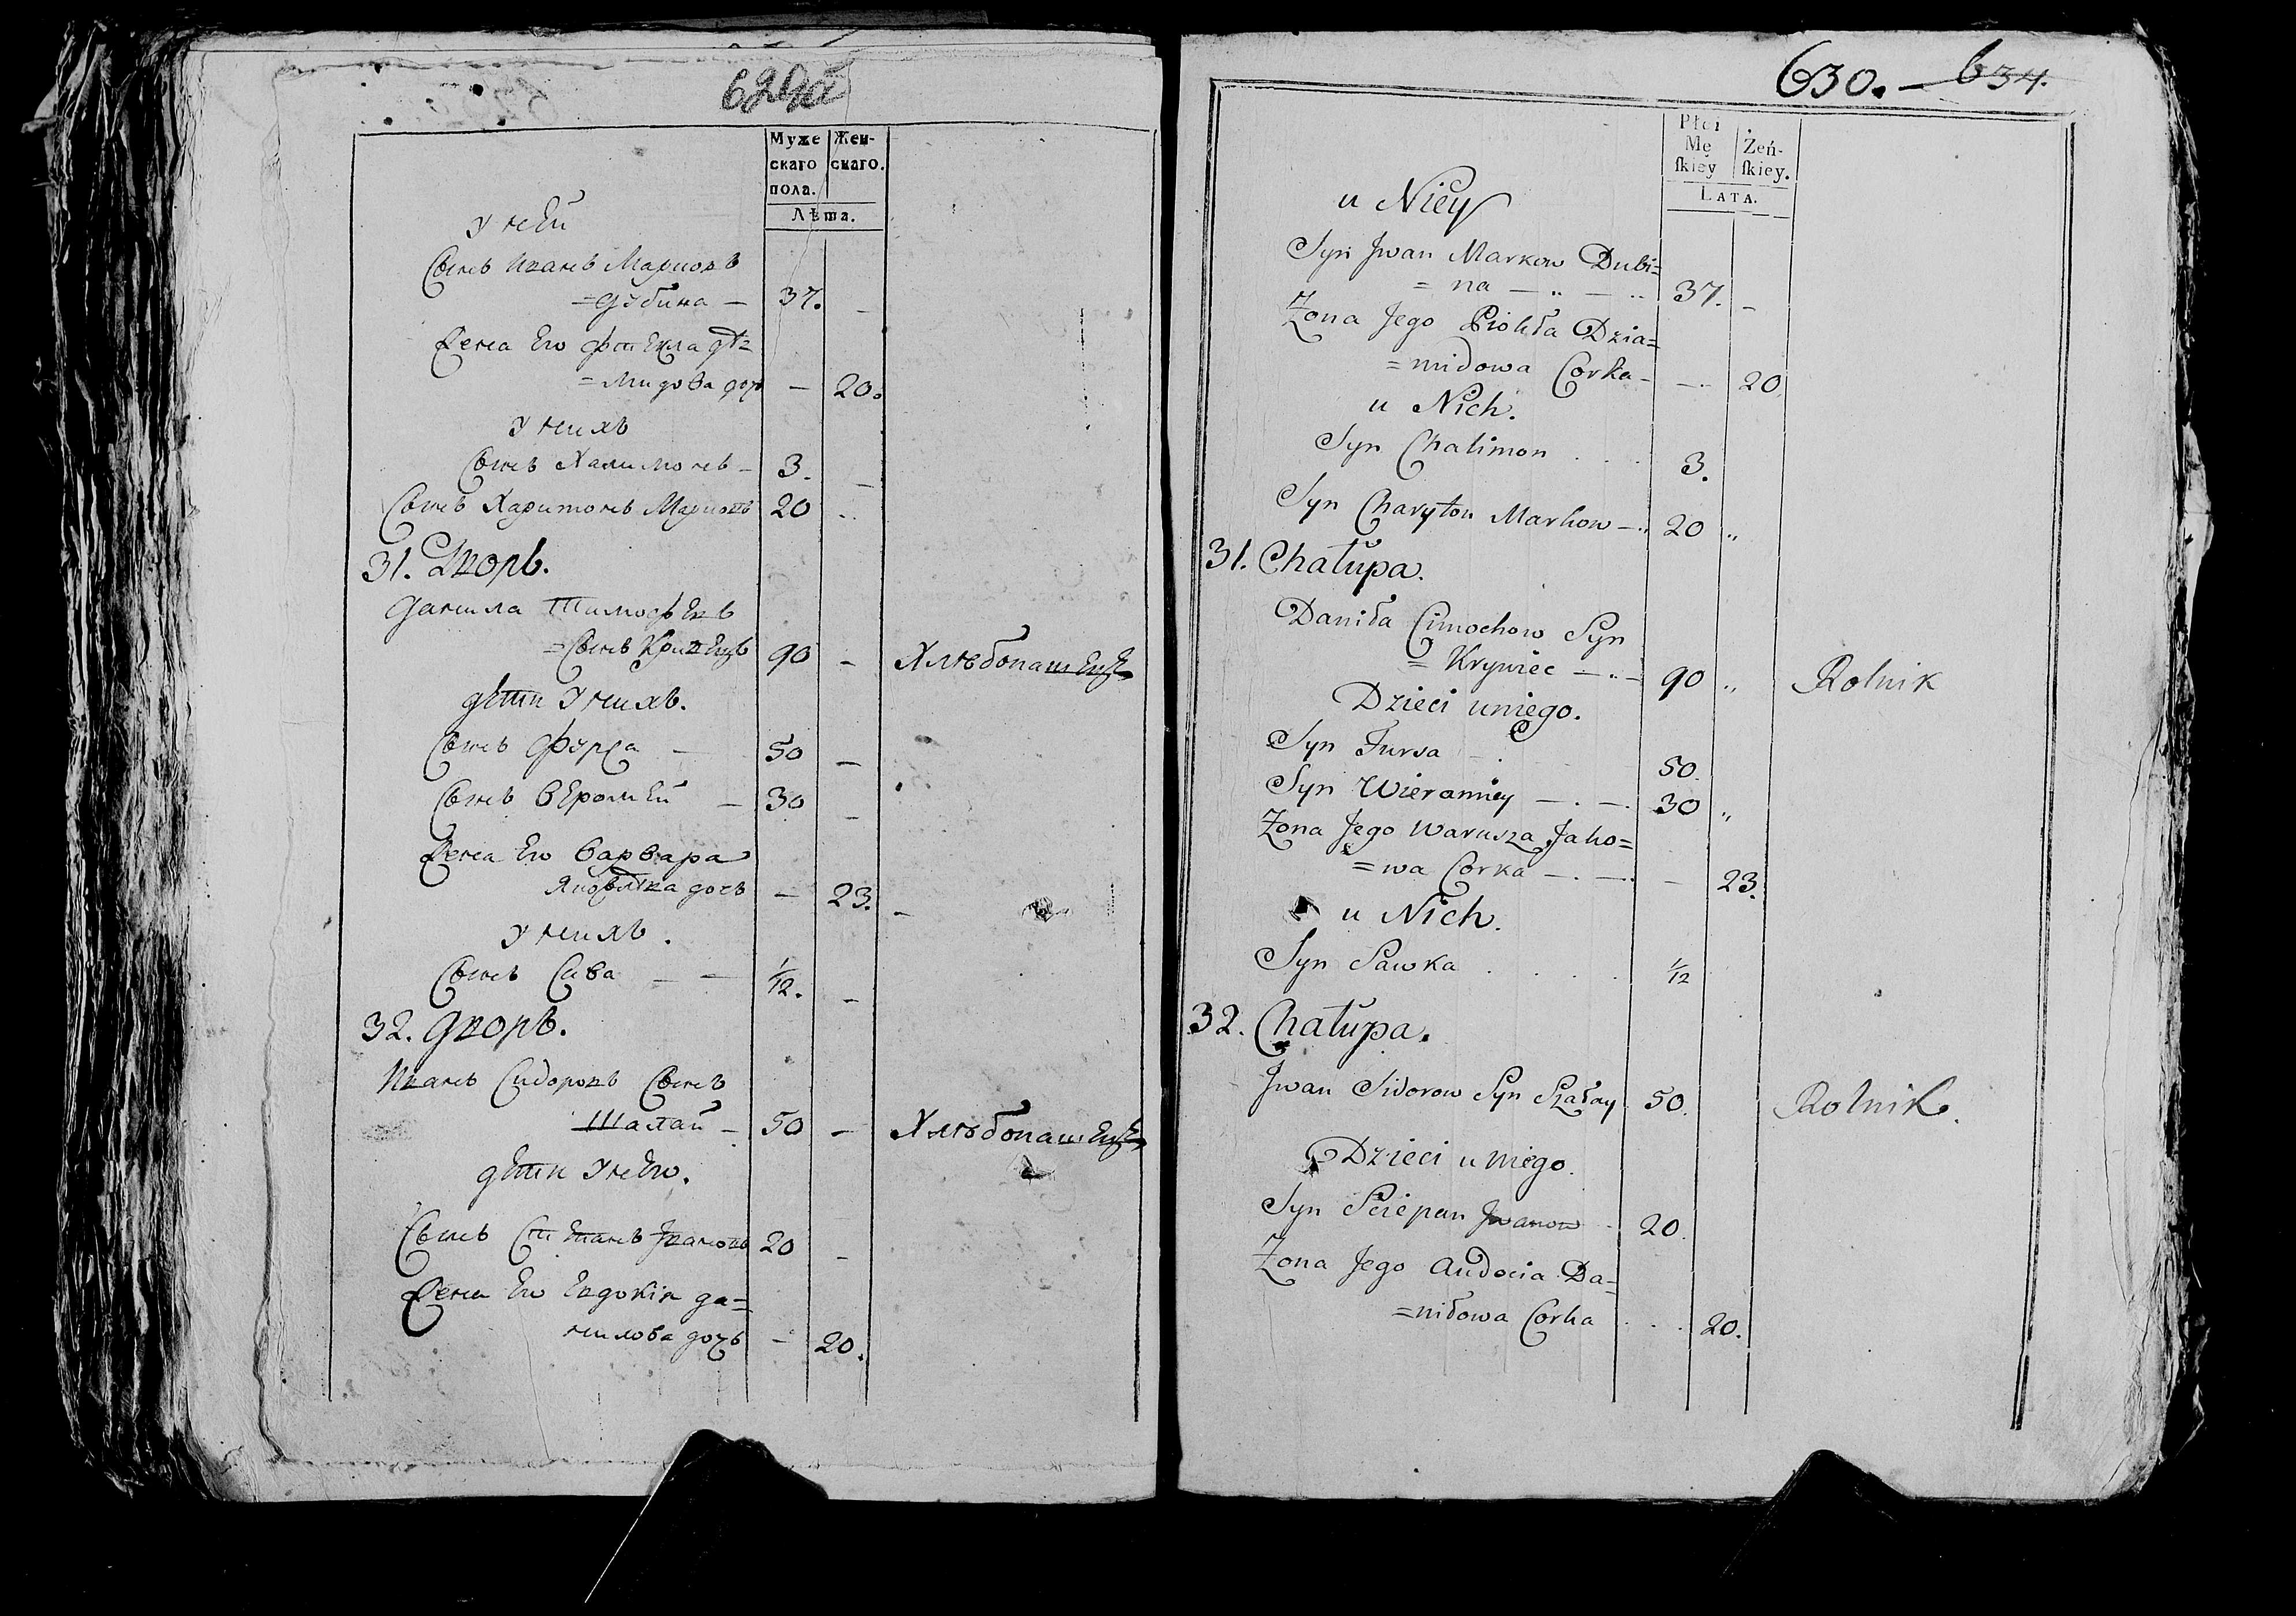 Муже
скаго
пола.
Жен-
скаго.
Лѣта.
У ней
Сынъ Иванъ Марковъ
=Дубина — 37. —
Жена Его Фтекла Дѣ=
=мидова дочь — 20.
У нихъ
Сынъ Халимонъ — 3. —
Сынъ Харитонъ Марковъ 20 ..
31. Дворъ.
Данила Тимофѣевъ
=Сынъ Кривецъ 90 — Хлѣбопашецъ
Дѣти У нихъ.
Сынъ Фурса — 50 —
Сынъ Веремей — 30 —
Жена Его Варвара
Яковлева дочь — 23. —
У нихъ.
Сынъ Сава — — 1/12. —
32. Дворъ.
Иванъ Сидоровъ Сынъ
Шалай — 50 — Хлѣбопашецъ
Дѣти У него.
Сынъ Степанъ Івановъ 20 —
Жена Его Евдокія Да=
нилова дочь — 20.
630. — 634.
Płci
Mę
ſkiey
Żeń-
ſkiey.
LATA.
u Niey
Syn Jwan Markow Dubi=
= na — .. — .. 37. —
Zona Jego Dzia=
=midowa Corka — — 20
u Nich.
Syn Chalimon . . . 3.
Syn Charyton Markow — .. 20 ..
31. Chałupa.
Daniła Cimochow Syn
= Krywiec — .. — 90 .. Rolnik
Dzieci uniego.
Syn Fursa 50.
Syn Wieramiey — . — . 30 ..
Zona Jego Warusza Jako=
=wa Corka — . — .. — 23.
u Nich.
Syn Sawka . . . . 1/12
32. Chałupa.
Jwan Sidorow Syn Szałay 50. Rolnik.
Dzieci u niego.
Syn Sciepan Jwanow 20.
Zona Jego Audocia Da=
=niłowa Corka . . . 20.